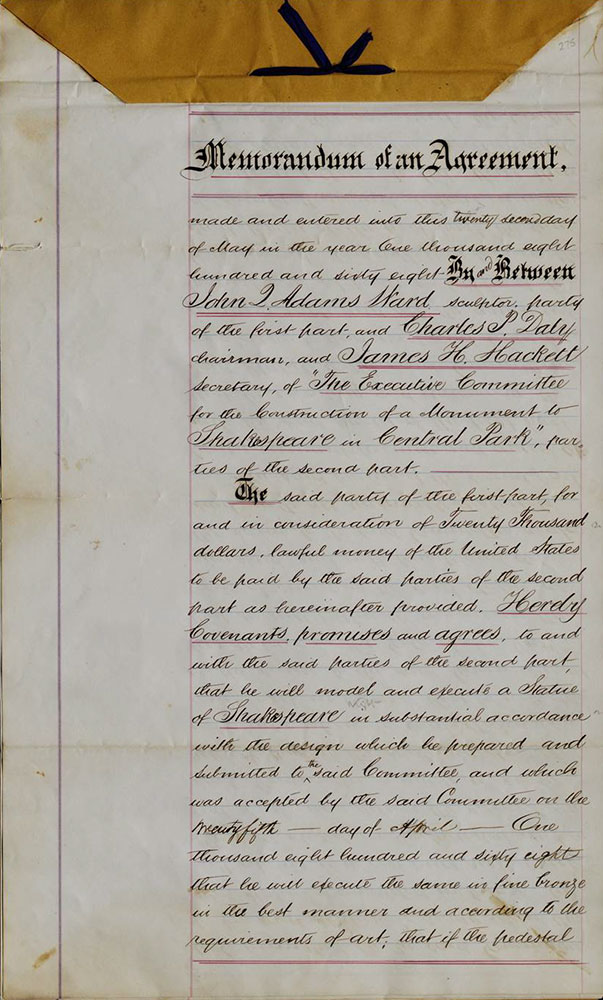 275
Memorandum of an Agreement,
made and entered into this twenty second day
of May in the year One thousand eight
hundred and sixty eight By and Between
John Q. Adams Ward, sculptor, party
of the first part, and Charles P. Daly
chairman, and James H. Hackett
Secretary, of "The Executive Committee
for the Construction of a Monument to
Shakespeare in Central Park", par-
ties of the second part.
The said party of the first part, for
and in consideration of Twenty Thousand
dollars, lawful money of the United States
to be paid by the said parties of the second
part as hereinafter provided, Hereby
Covenants, promises and agrees, to and
with the said parties of the second part,
that he will model and execute a Statue
of Shakespeare in substantial accordance
with the design which he prepared and
submitted to the said Committee, and which
was accepted by the said Committee on the
twenty fifth — day of April — One
thousand eight hundred and sixty eight
that he will execute the same in fine bronze
in the best manner and according to the
requirements of art; that if the pedestal